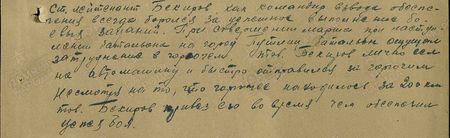 Ст. лейтенант Бекиров как командир взвода обеспе-
чения всегда боролся за успешное выполнение бо-
евых заданий. При совершении марша при насту-
плении батальона на город батальон ощутил
затруднение в горючем. Тов. Бекиров лично сел
на автомашину и быстро отправился за горючим
Несмотря на то, что горючее находилось за 200 км
тов. Бекиров привез его во время чем обеспечил
успех боя.